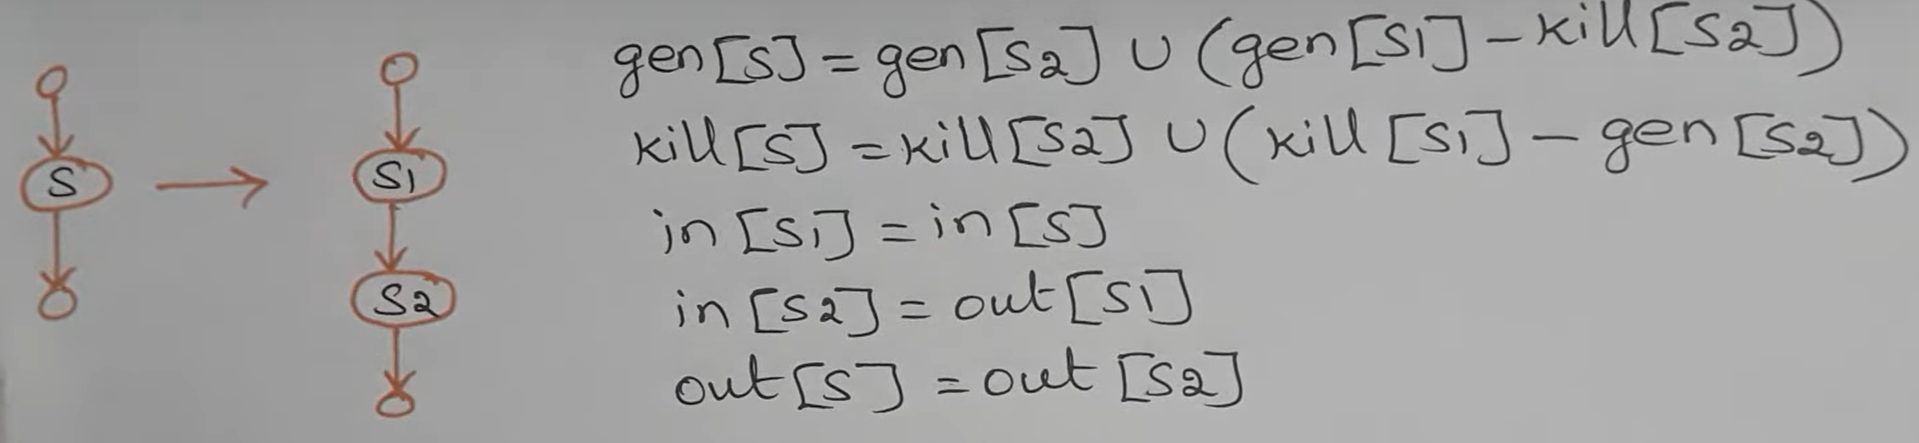 S
S1
S2
gen[S] = gen[S2] ∪ (gen[S1] - kill[S2])
kill[S] = kill[S2] ∪ (kill[S1] - gen[S2])
in[S1] = in[S]
in[S2] = out[S1]
out[S] = out[S2]